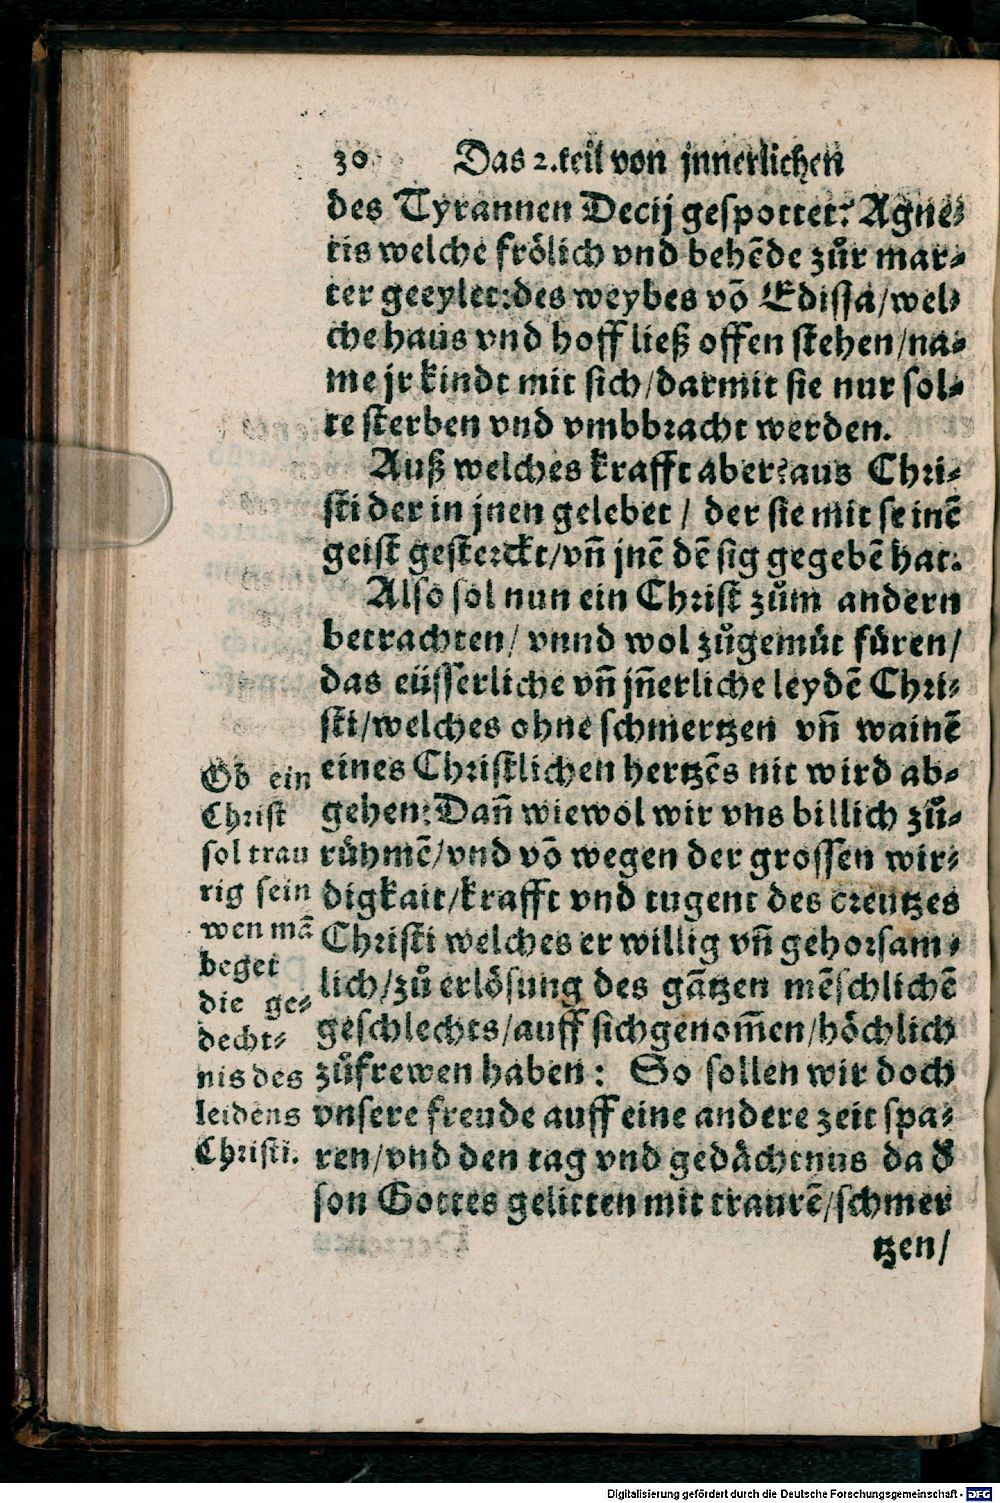 30 Das 2. teil von jnnerlichen
des Tyrannen Decij gespottet? Agne⸗
tis welche frölich vnd behēde zůr mar⸗
ter geeylet: des weybes vō Edissa/wel⸗
che haus vnd hoff ließ offen stehen/na⸗
me jr kindt mit sich/darmit sie nur sol⸗
te sterben vnd vmbbracht werden.
Auß welches krafft aber? aus Chri⸗
sti der in jnen gelebet / der sie mit seinē
geist gesterckt/vn̄ jnē dē sig gegebē hat.
Also sol nun ein Christ zům andern
betrachten/ vnnd wol zůgemüt füren/
das eüsserliche vn̄ jn̄erliche leydē Chri⸗
sti/welches ohne schmertzen vn̄ wainē
eines Christlichen hertzēs nit wird ab⸗
gehen: Dan̄ wiewol wir vns billich zů⸗
rühmē/vnd vō wegen der grossen wir⸗
digkait/krafft vnd tugent des creutzes
Christi welches er willig vn̄ gehorsam⸗
lich/zů erlösung des gātzen mēschlichē
geschlechts/auff sich genom̄en/höchlich
zůfrewen haben: So sollen wir doch
vnsere freude auff eine andere zeit spa⸗
ren/vnd den tag vnd gedächtnus da d̕
son Gottes gelitten mit traurē/schmer
tzen/
Ob ein
Christ
sol trau
rig sein
wen mā
beget
die ge⸗
decht⸗
nis des
leidens
Christi.
Digitalisierung gefördert durch die Deutsche Forschungsgemeinschaft - DFG